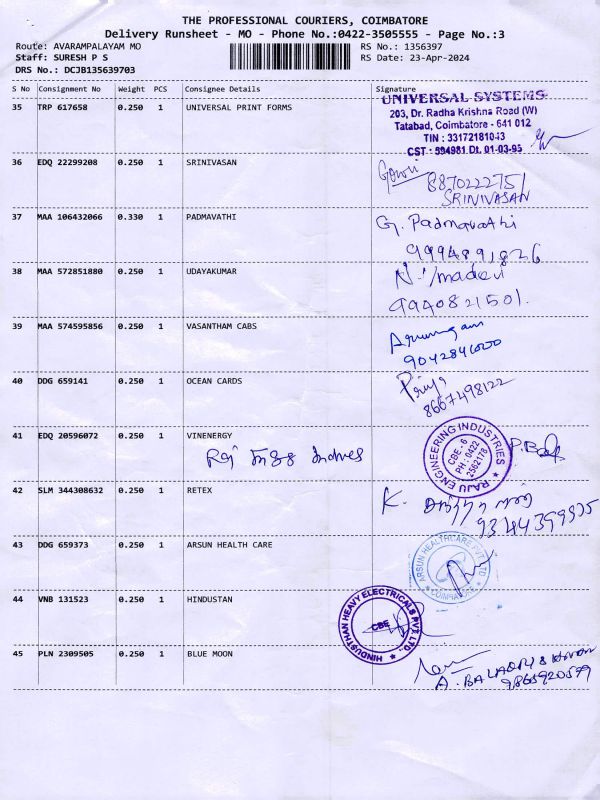 THE PROFESSIONAL COURIERS, COIMBATORE
Delivery Runsheet - MO - Phone No.:0422-3505555 - Page No.:3
Route: AVARAMPALAYAM MO RS No.: 1356397
Staff: SURESH P S RS Date: 23-Apr-2024
DRS No.: DCJB135639703
S No Consignment No Weight PCS Consignee Details Signature
35 TRP 617658 0.250 1 UNIVERSAL PRINT FORMS
UNIVERSAL SYSTEMS
203, Dr. Radha Krishna Road (W)
Tatabad, Coimbatore - 641 012
TIN : 33172181043
CST : 594981 Dt. 01-03-95
36 EDQ 22299208 0.250 1 SRINIVASAN
Gowri
8870222751
SRINIVASAN
37 MAA 106432066 0.330 1 PADMAVATHI
G. Padmavathi
9994891826
38 MAA 572851880 0.250 1 UDAYAKUMAR
N. Umadevi
9940821501.
39 MAA 574595856 0.250 1 VASANTHAM CABS
Arumugam
9042846000
40 DDG 659141 0.250 1 OCEAN CARDS
Priya
8667498122
41 EDQ 20596072 0.250 1 VINENERGY
RAJU ENGINEERING INDUSTRIES
CBE - 6
PH : 0422
2562178
42 SLM 344308632 0.250 1 RETEX
K.
9344399335
43 DDG 659373 0.250 1 ARSUN HEALTH CARE
ARSUN HEALTHCARE PVT. LTD
COIMBATORE
44 VNB 131523 0.250 1 HINDUSTAN
HINDUSTHAN HEAVY ELECTRICALS PVT. LTD.,
CBE
45 PLN 2309505 0.250 1 BLUE MOON
9865920599